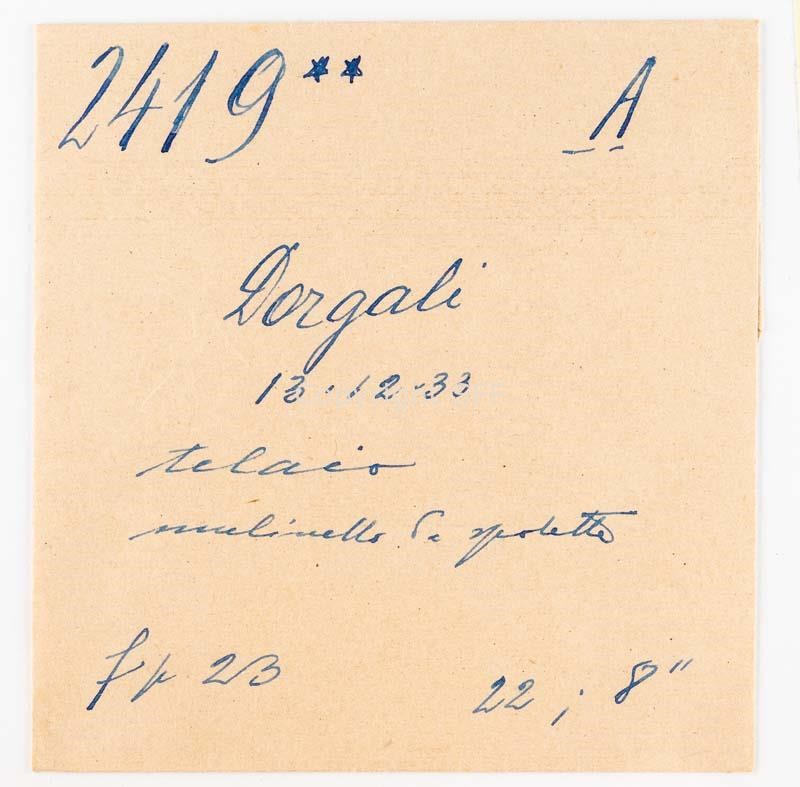 2419** A
Dorgali
13.12.33
telaio
mulinello da spolette
fp 23 22 ; 8"